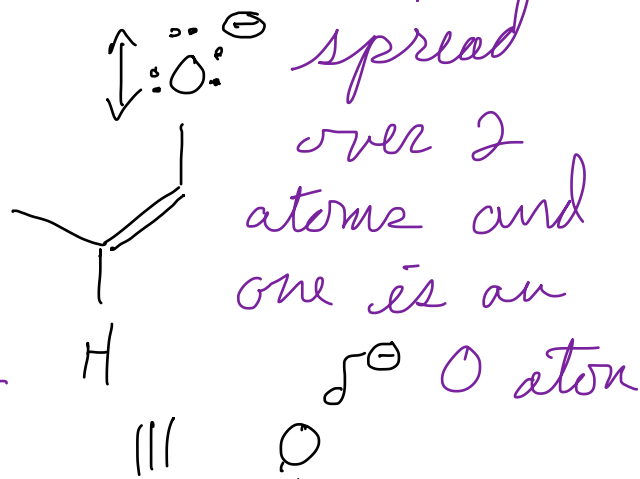 spread
O ⊖
over 2
atoms and
one is an
H
δ⊖
O atom
O